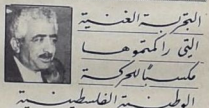 التجربة الغنية
التي راكمتموها
مكسبًا للحركة
الوطنية الفلسطينية